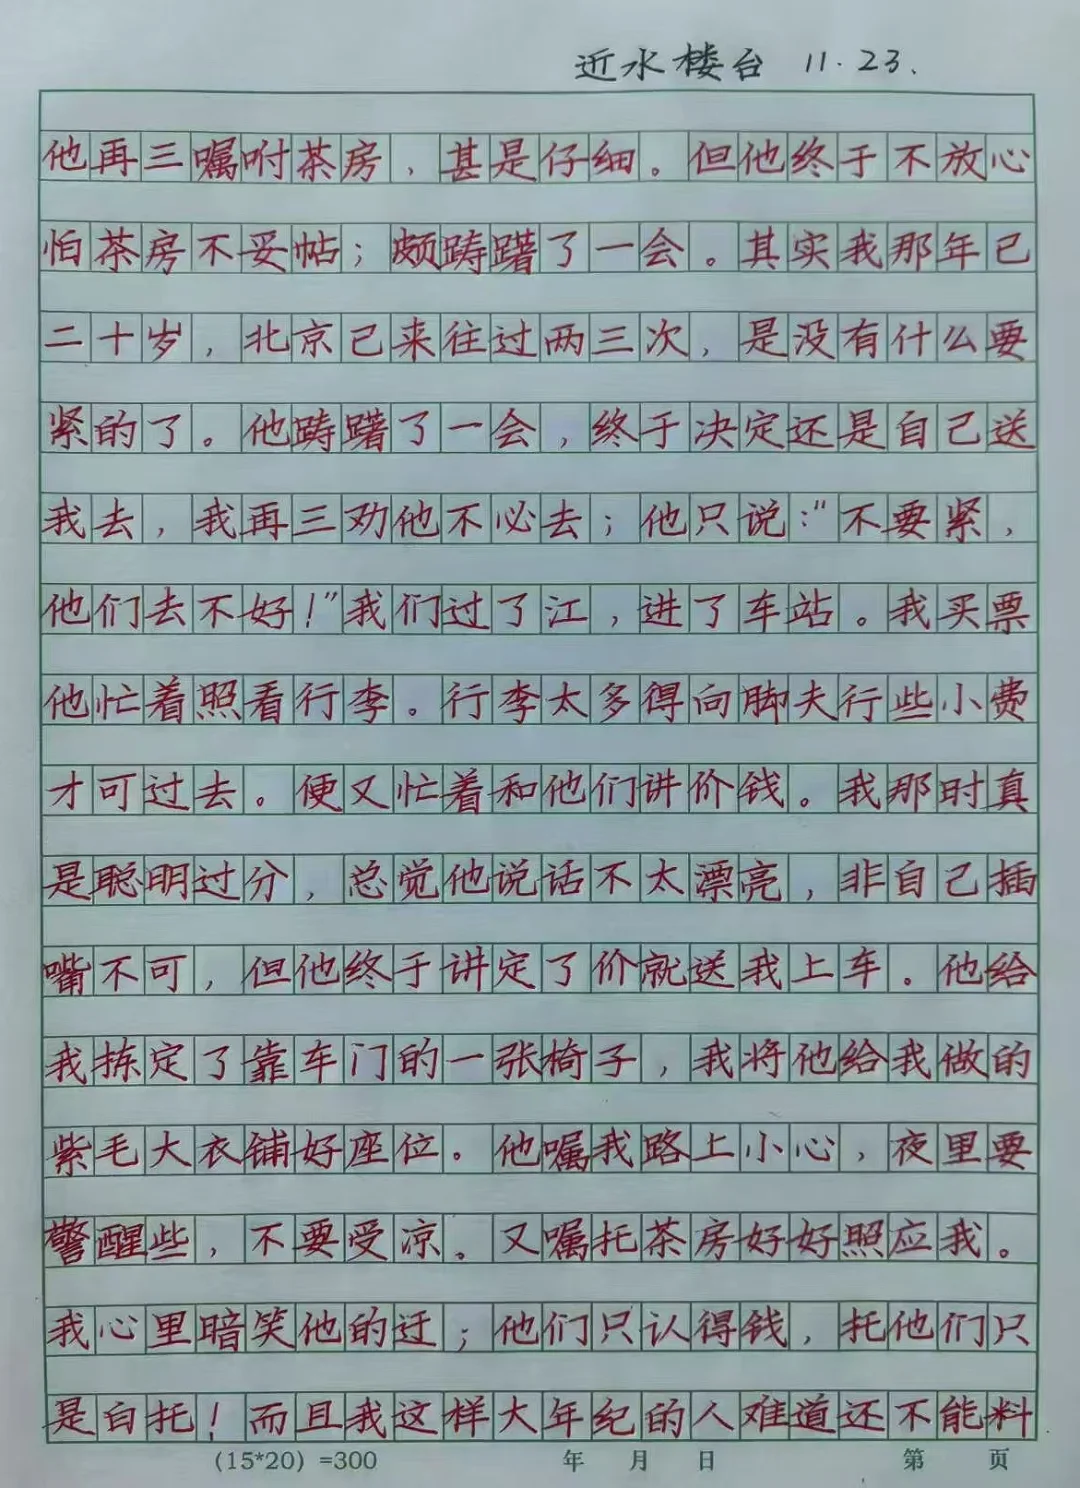 近水楼台 11.23.
他再三嘱咐茶房，甚是仔细。但他终于不放心
怕茶房不妥帖；颇踌躇了一会。其实我那年已
二十岁，北京已来往过两三次，是没有什么要
紧的了。他踌躇了一会，终于决定还是自己送
我去，我再三劝他不必去；他只说："不要紧，
他们去不好！"我们过了江，进了车站。我买票
他忙着照看行李。行李太多得向脚夫行些小费
才可过去。便又忙着和他们讲价钱。我那时真
是聪明过分，总觉他说话不太漂亮，非自己插
嘴不可，但他终于讲定了价就送我上车。他给
我拣定了靠车门的一张椅子，我将他给我做的
紫毛大衣铺好座位。他嘱我路上小心，夜里要
警醒些，不要受凉。又嘱托茶房好好照应我。
我心里暗笑他的迂；他们只认得钱，托他们只
是白托！而且我这样大年纪的人难道还不能料
(15*20) =300 年 月 日 第 页